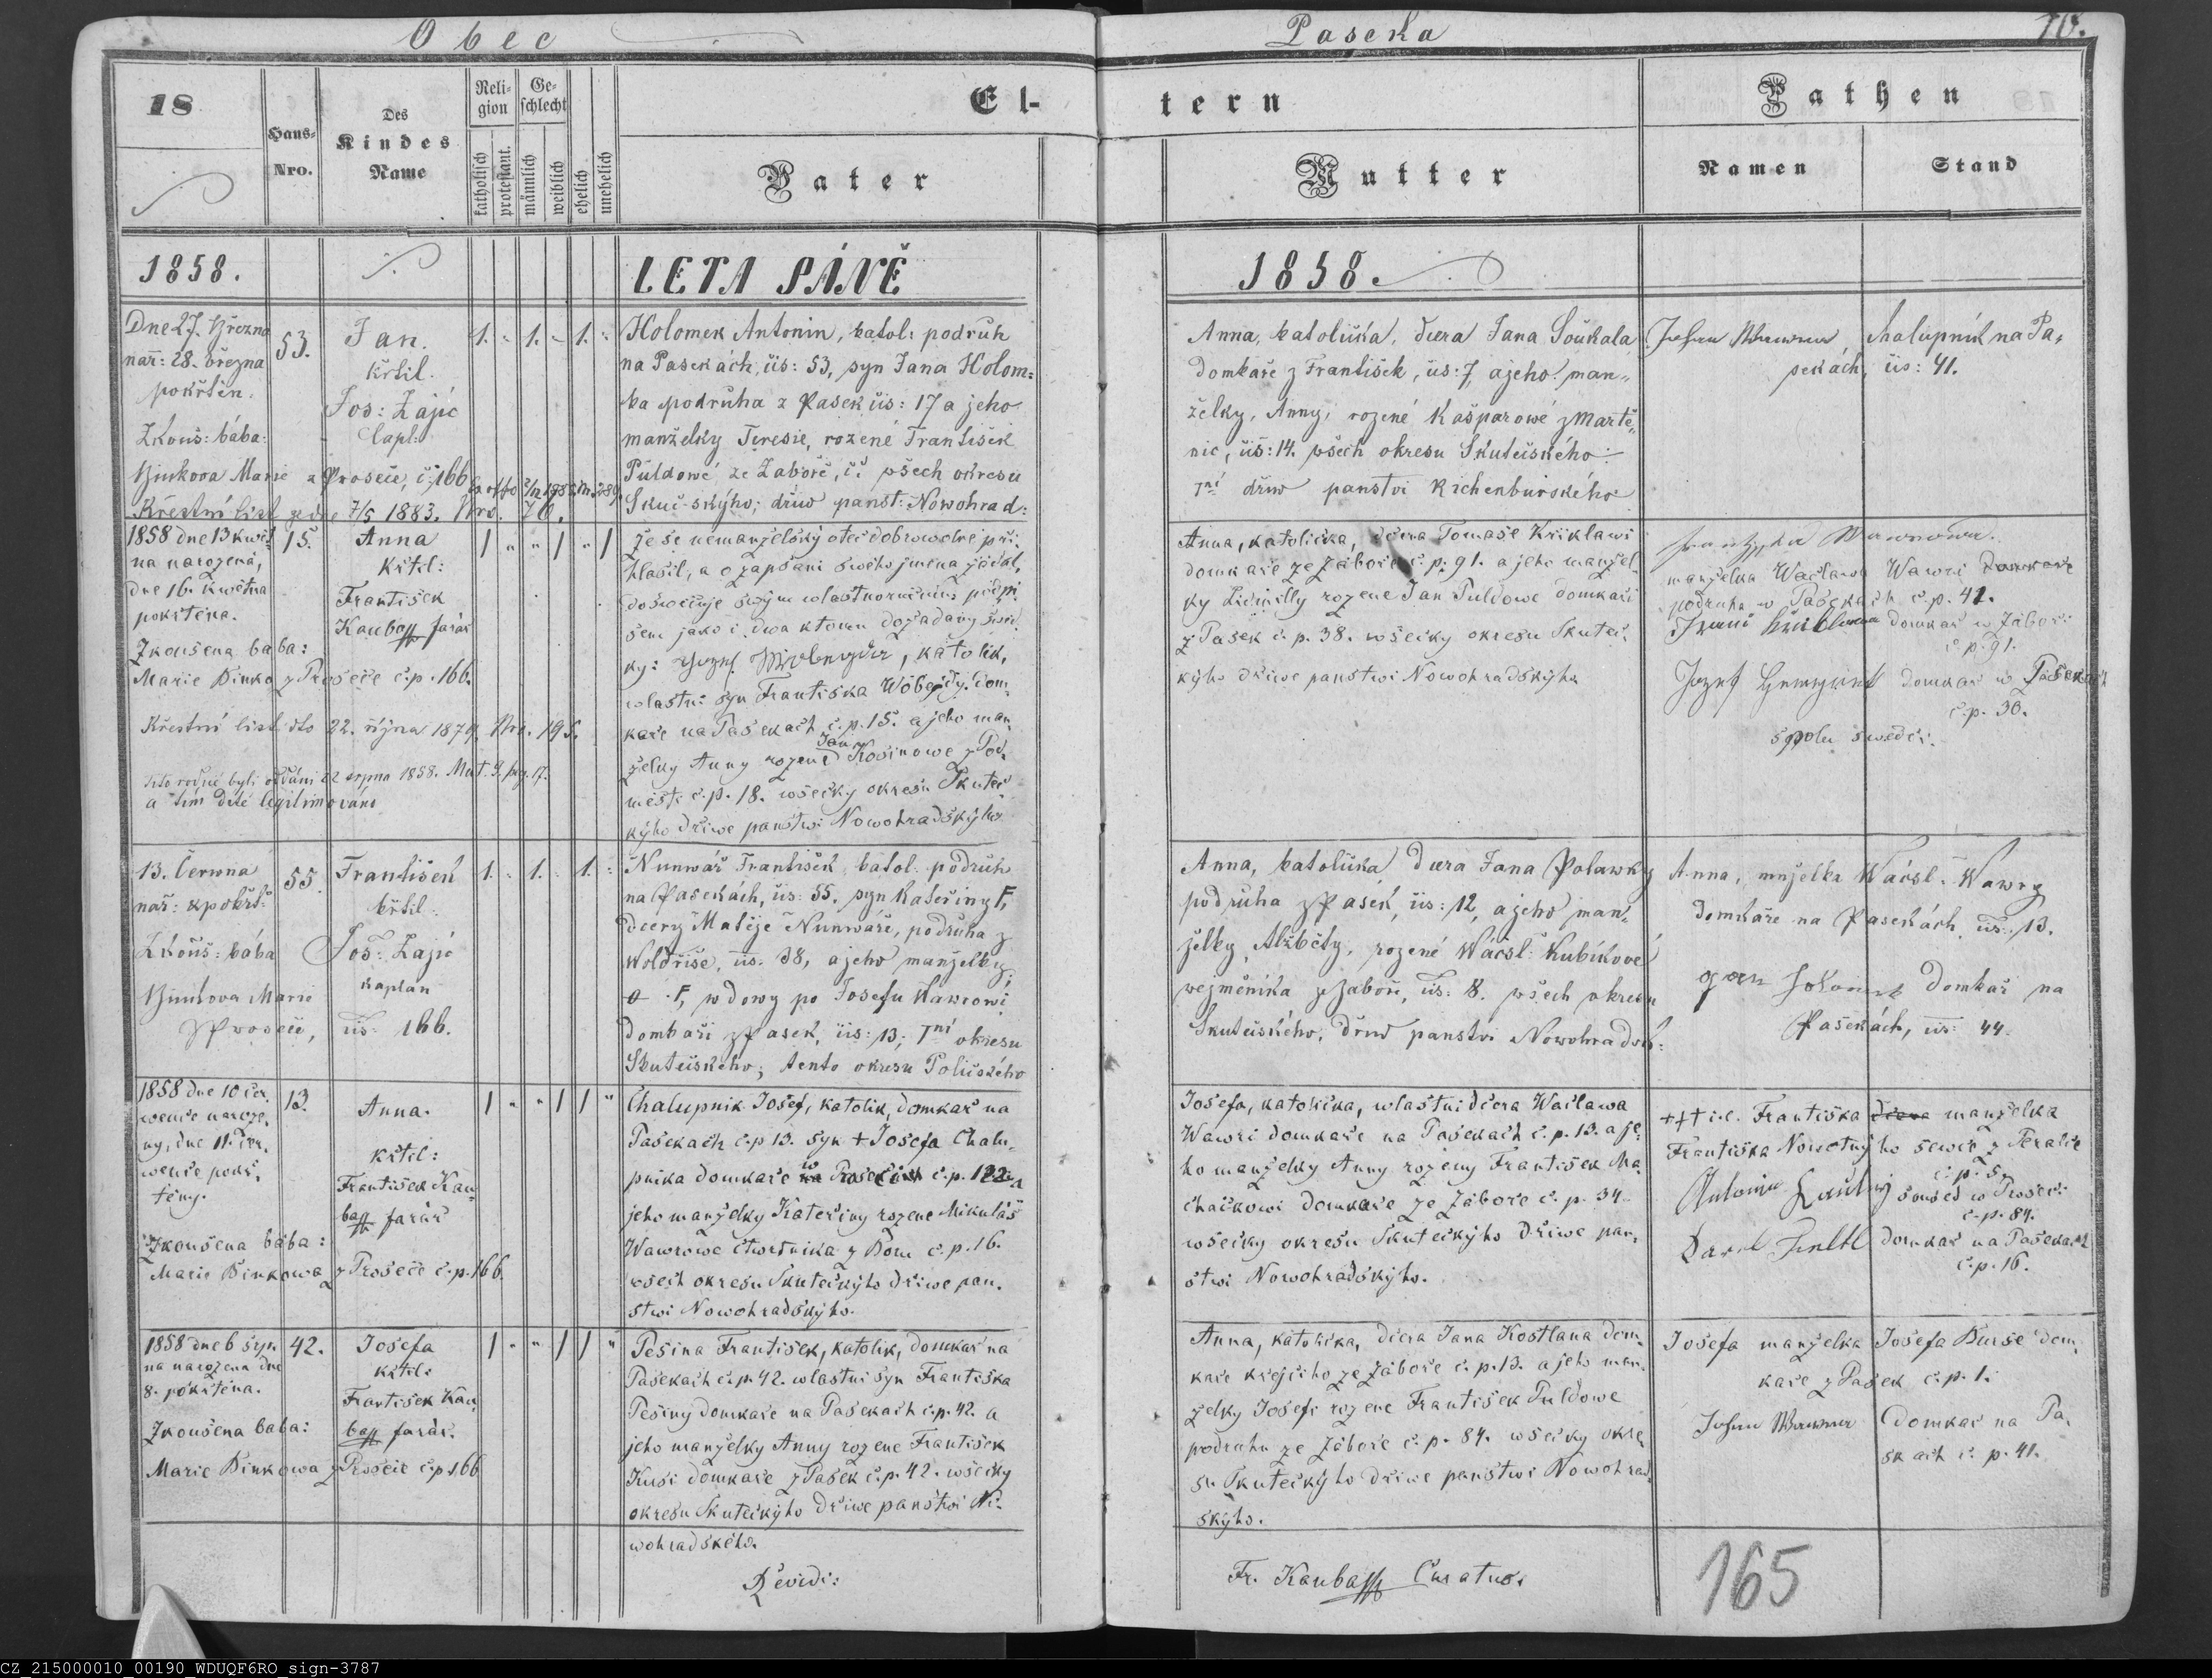 Obec
Paseka
70.
18
Haus-
Nro.
Des
Kindes
Name
Reli-
gion
Ge-
schlecht
katholisch
protestant.
männlich
weiblich
ehelich
unehelich
El-
tern
Vater
Mutter
Pathen
Namen
Stand
1858.
LETA PÁNĚ
1858.
Dne 27. Března
nar: 28. března
pokřtěn.
Zkouš: bába:
Marie z Proseče, č: 166
Křestní list 7/5 1883. Nro. 70.
53.
Jan.
křtil.
Jos: Zajíc
1. 1. 1.
Holomek Antonín, katol: podruh
na Pasekách, čís: 53, syn Jana Holom-
ka podruha z Pasek čís: 17 a jeho
manželky Teresie, rozené František
Půldowé ze Zaboře, všech okresu
dřiw panst: Nowohrad:
Anna, katolička, dcera Jana Soukala
domkaře z František, čís: 7, a jeho man-
želky, Anny, rozené Kašparowé z Martě-
nic, čís: 14. wšech okresu Skutečského
dřiw panství Richenburského
Chalupník na Pa-
sekách, čís: 41.
1858 dne 13 kwět
na narozena,
dne 16. kwětna
pokřtěna.
Zkoušena baba:
Marie Binko z Proseče č.p. 166.
Křestní list dto 22. října 1879 Nro. 195.
byli oddáni 22 srpna 1858. Mat. 9. pag. 17.
a tím dítě legitimováno
15.
Anna
křtil:
František
Kaubaff farář
že se nemanželský otec dobrowolně při-
hlasil, a o zapsani sweho jmena žádal,
doswěčuje swým wlastnoručním podpi-
sem jako i dwa k tomu dožadany swěd-
ky: , katolik,
wlastni syn Františka dom-
kaře na Pasekach č.p. 15. a jeho man-
želky Anny rozene Jana Kosinowe z Pod-
městi č.p. 18. wšecky okresu Skuteč
kýho dřiwe panstwi Nowohradskýho
Anna, katolička, dcera Tomaše Křiklawi
domkaře ze Zaboře č.p. 91. a jeho manžel-
ky Lidmilly rozene Jan Puldowe domkaři
z Pasek č.p. 38. wšecky okresu Skuteč-
kýho dřiwe panstwi Nowohradskýho
manželka Waclawa Wawri
podruha w Pasekach č.p. 41.
domkař w Zaboři
č.p. 91.
Jozef domkař w Pasekach
č.p. 30.
spolu swědci.
13. Června
nar: & pokřt:
Zkouš: bába
Marie
z Proseče, čís: 166.
55.
František
křtil:
Jos: Zajíc
kaplan
1. 1. 1.
Nunwář František, katol: podruh
na Pasekách, čís: 55, syn Kateřiny,
dcery Matěje Nunwáře, podruha z
Woldřiše, čís: 38, a jeho manželky
wdowy po Josefu Wawrowi
domkaři z Pasek, čís: 13; okresu
Skutečského; tento okresu Poličského
Anna, katolička dcera Jana Polawky
podruha z Pasek, čís: 12, a jeho man-
želky, Alžběty, rozené Wácsl: Kubíkové
wejměnika z Zaboře, čís: 8. wšech okresu
Skutečského, dřiw panství Nowohrads:
Anna, manželka Wácsl: Wawry
domkáře na Pasekách, čís: 13.
domkář na
Pasekách, čís: 44.
1858 dne 10 čer-
wence naroze-
ny, dne 11. čer-
wence pokř-
těny.
Zkoušena baba:
Marie Binkowa z Proseče č.p. 166.
13.
Anna.
křtil:
František Kau-
baff farář
Chalupnik Josef, katolik, domkař na
Pasekach č.p. 13. syn + Josefa Chalu-
pnika domkaře w Proseči č.p. 122 a
jeho manželky Kateřiny rozene Mikuláš
Wawrowe čtwrtnika z Boru č.p. 16.
wšech okresu Skutečkýho dřiwe pan-
stwi Nowohradskýho.
Josefa, katolička, wlastni dcera Waclawa
Wawri domkaře na Pasekach č.p. 13. a je-
ho manželky Anny rozeny František Ma-
chačkowi domkaře ze Zaboře č.p. 34.
wšecky okresu Skutečkýho dřiwe pan-
stwi Nowohradskýho.
+++ i.e. Františka dcera manželka
Františka Nowotnýho sewce z Perálce
č.p. 5.
Antonin soused w Proseči
č.p. 84.
domkař na Pasekach
č.p. 16.
1858 dne 6 srp-
na narozena dne
8. pokřtěna.
Zkoušena baba:
Marie Binkowa z Proseče č.p. 166
42.
Josefa
křtil:
František Kau-
baff farář.
Pešina František, katolik, domkař na
Pasekach č.p. 42. wlastni syn Františka
Pešiny domkaře na Pasekach č.p. 42. a
jeho manželky Anny rozene František
Kusi domkaře z Pasek č.p. 42. wšecky
okresu Skutečkýho dřiwe panstwi No-
wohradskeho.
Anna, katolička, dcera Jana Kostlana dom-
kaře krejčiho ze Zaboře č.p. 13. a jeho man-
želky Josefi rozene František Puldowe
podruhu ze Zaboře č.p. 84. wšecky okre-
su Skutečkýho dřiwe panstwi Nowohrad-
skýho.
Josefa manželka Josefa Burše dom-
kaře z Pasek č.p. 1.
domkař na Pa-
sekach č.p. 41.
Revidi:
Fr. Kaubaff Curatus.
165
CZ_215000010_00190_WDUQF6RO_sign-3787